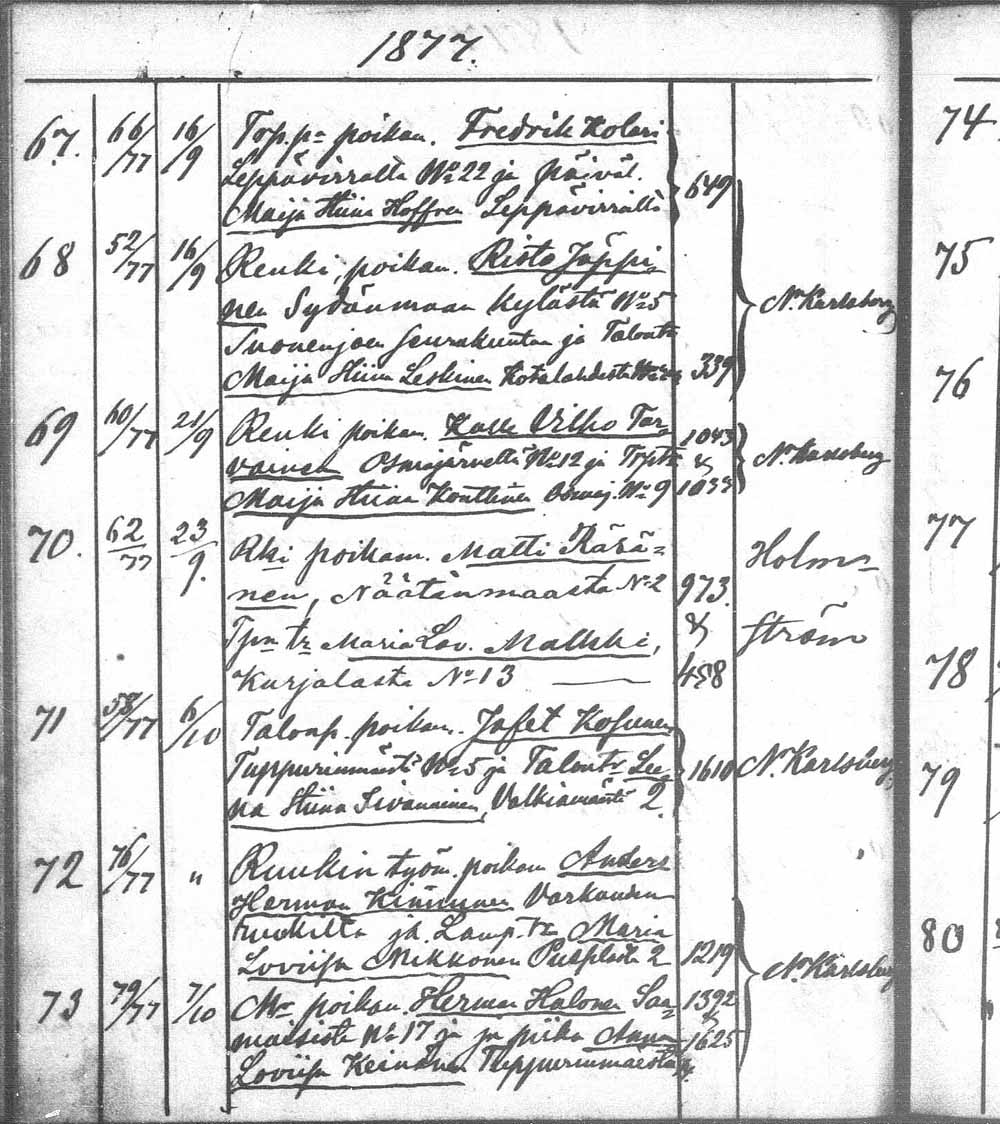 1877.
67. 66/77 16/9 Torp.pr poikam. Fredrik Holari
Leppävirralta No 22 ja päivät.
Maija Stiina Hoffren Leppävirralta
649
68 52/77 16/9 Renki, poikam. Risto Jäppi-
nen Sydänmaan kylästä No 5
Suonenjoen seurakuntaa ja Talontr
Maija Stiina Leskinen Kotalahdesta
339
N. Karlsberg
69 60/77 21/9 Renki poikam. Kalle Vilho Tar- 1043
vainen Osmajärveltä No 12 ja Tprtr &
Maija Stiina Konttinen Osmaj. No 9 1033
N. Karlsberg
70. 62/77 23/9. Rki poikam. Matti Räsä=
nen, Näätänmaasta No 2 973.
Tpn tr Maria Lov. Malkki, &
Kurjalasta No 13 — 458
Holm=
ström
71 58/77 6/10 Talonp. poikam. Jafet Kosunen
Tuppurinmäestä No 5 ja Talontr Lee-
na Stiina Sivanainen, Valkiamäestä 2.
1610 N. Karlsberg
72 76/77 " Ruukin työm. poikam Anders
Herman Kinnunen Varkauden
ruukilta ja Lamp.tr Maria
Loviisa Mikkonen 2 1219
73 79/77 7/10 Mr poikam. Herman Halonen Saa- 1392
maisista No 17 ja piika Anna &
Loviisa Keinänen Tuppurinmäestä 1625
N. Karlsberg
74
75
76
77
78
79
80